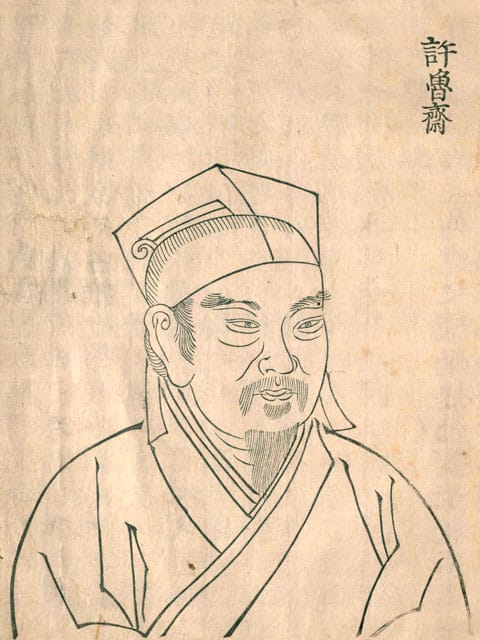 許魯齋